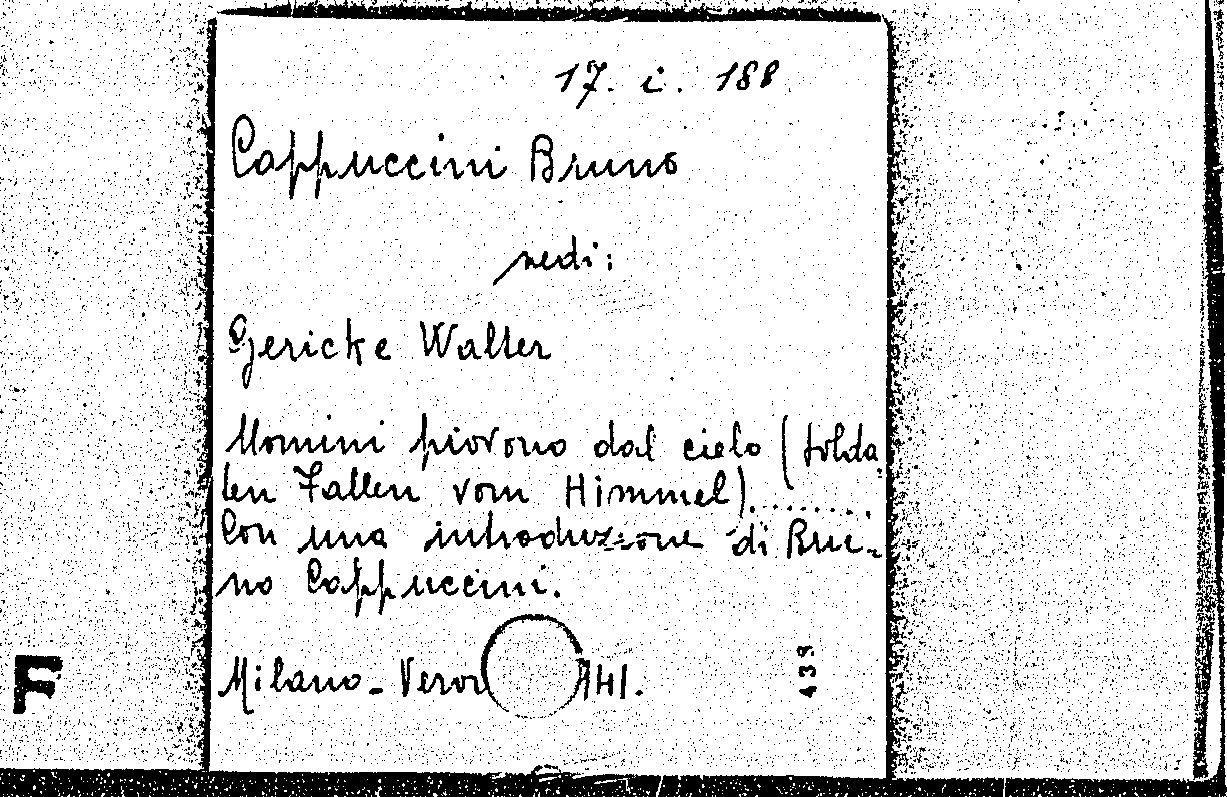 17. i. 188
Cappuccini Bruno
vedi:
Gericke Walter
Uomini piovono dal cielo (solda
ten Fallen vom Himmel).........
Con una introduzione di Bru-
no Cappuccini.
Milano - Veron 1941.
439
F